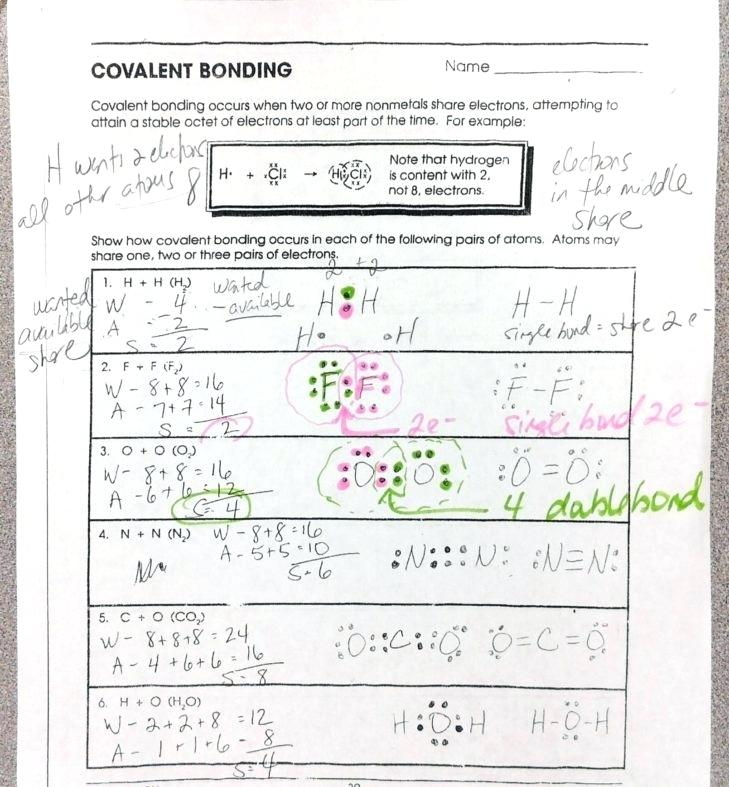 COVALENT BONDING
Name
Covalent bonding occurs when two or more nonmetals share electrons, attempting to
attain a stable octet of electrons at least part of the time. For example:
H wants 2 electrons
all other atoms 8
H· + Cl → H Cl
Note that hydrogen
is content with 2,
not 8, electrons.
electrons
in the middle
share
Show how covalent bonding occurs in each of the following pairs of atoms. Atoms may
share one, two or three pairs of electrons.
wanted
available
share
1. H + H (H₂)
W - 4
A - 2
S = 2
wanted
- available
2 + 2
H : H
H· ·H
H - H
single bond = share 2 e-
2. F + F (F₂)
W - 8+8=16
A - 7+7=14
S = 2
F F
2e-
F - F
single bond 2e-
3. O + O (O₂)
W - 8+8=16
A - 6+6=12
S = 4
O O
O = O
4 double bond
4. N + N (N₂)
W - 8+8=16
A - 5+5=10
S = 6
:N:::N:
:N≡N:
5. C + O (CO₂)
W - 8+8+8=24
A - 4+6+6=16
S = 8
O::C::O
O=C=O
6. H + O (H₂O)
W - 2+2+8=12
A - 1+1+6-8
S = 4
H:O:H
H-O-H